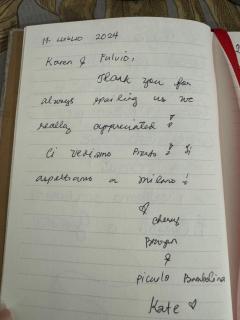 14 LUGLIO 2024
Karen & Fulvio,
Thank you for
always spoiling us we
really appreciated !
Ci vediamo Presto ! Vi
aspettiamo a milano !
&
Piccola Bambolina
Kate ♡